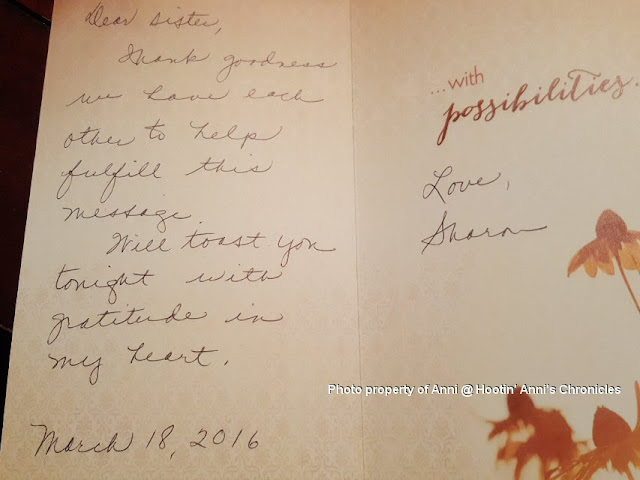 Dear sister,
Thank goodness
we have each
other to help
fulfill this
message.
Will toast you
tonight with
gratitude in
my heart.
March 18, 2016
...with
possibilities.
Love,
Sharon
Photo property of Anni @ Hootin' Anni's Chronicles